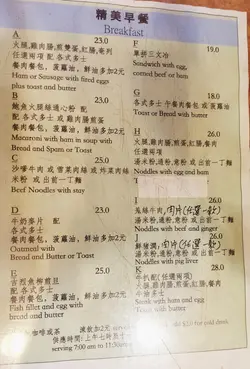 精美早餐
Breakfast
A 23.0
火腿,雞肉腸,煎雙蛋,紅腸,餐肉
任選兩項 配 各式多士
餐肉餐包, 菠蘿油, 鮮油多加2元
Ham or Sausage with fried eggs
plus toast and butter
B 23.0
鮑魚火腿絲通心粉 配
配 各式多士 或 雞肉腸煎蛋
餐肉餐包, 菠蘿油, 鮮油多加2元
Macaroni with ham in soup with
Bread and Spam or Toast
C 25.0
沙嗲牛肉 或 雪菜肉絲 或 炸菜肉絲
米粉 或 出前一丁麵
Beef Noodles with stay
D 23.0
牛奶麥片 配
各式多士
餐肉餐包, 菠蘿油, 鮮油多加2元
Oatmeal with
Bread and Butter or Toast
E 25.0
吉烈魚柳煎旦
配 各式多士
餐肉餐包, 菠蘿油, 鮮油多加2元
Fish fillet and egg with
bread and butter
F 19.0
單拼三文冶
Sandwich with egg,
corned beef or ham
G 18.0
各式多士 牛餐肉餐包 或 菠蘿油
Toast or Bread with butter
H 23.0
火腿,雞肉腸,煎蛋,紅腸,餐肉
任選兩項
湯米粉,通粉,意粉 或 出前一丁麵
Noodles with egg and ham
湯米粉,通粉,意粉 或 出前一丁麵
Noodles with beef and ginger
鮮豬潤,肉片
湯米粉,通粉,意粉 或 出前一丁麵
Noodles with pig liver
K 26.0
牛扒配(任選兩項)
火腿,雞肉腸,煎蛋,紅腸,餐肉
牛油多士
Steak with ham and egg
Toast with butter
咖啡或茶
凍飲加2元
供應時間:上午七時至十一
serving 7:00 am to 11:30am
for cold drink